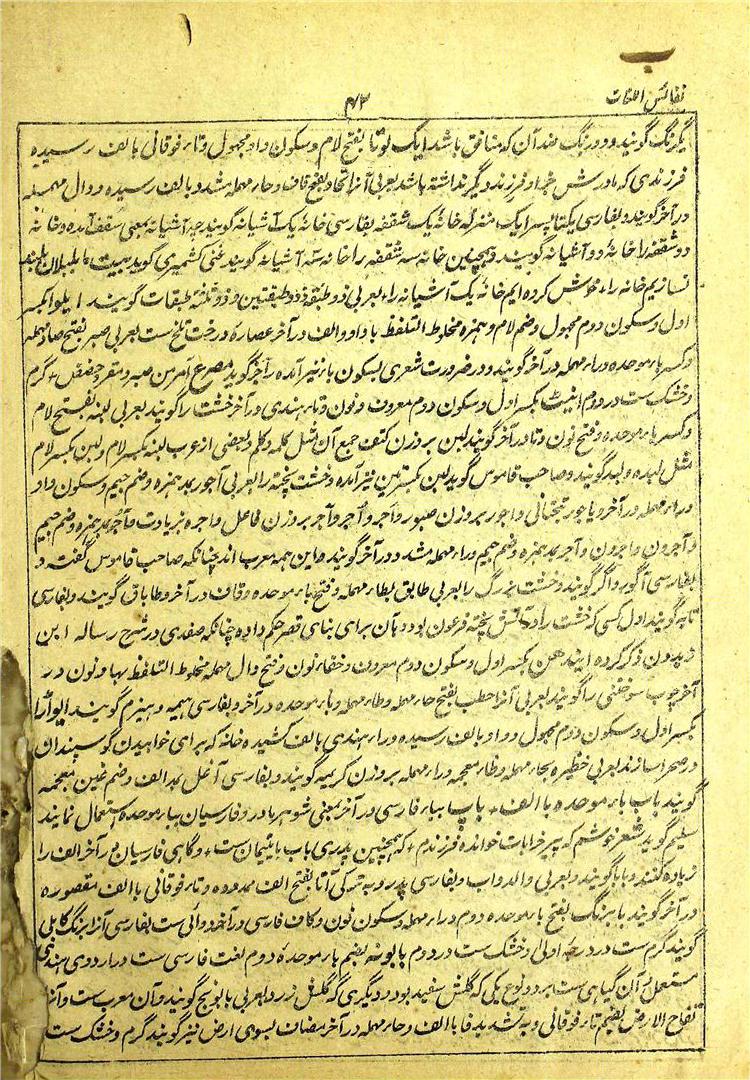 نفائس اللغات
۴۳
یکرنگ گویند و دورنگ ضد آن که منافق باشد ایک لوتا بفتح لام و سکون واو مجهول و تاء فوقانی بالف رسیده
فرزندی که مادرش جز او فرزند دیگر نداشته باشد بعربی آنرا اتحاد بفتح قاف و حاء مهمله مشدد بالف رسیده و دال مهمله
در آخر گویند و بفارسی یکتا پسر ایک منزله خانه یک شقفه بفارسی خانه یک آشیانه گویند چه آشیانه بمعنی سقف آمده و خانه
دو شقفه را خانه دو آشیانه گویند و همچنین خانه سه شقفه را خانه سه آشیانه گویند غنی کشمیری گوید بیت ما بلبلان بلند
نسازیم خانه را خوش کرده ایم خانه یک آشیانه را بعربی ذو طبقة و ذو طبقتین و ذو ثلثة طبقات گویند ایلوا بکسر
اول و سکون دوم مجهول و ضم لام و همزه مخلوط التلفظ با واو و الف در آخر عصاره درخت تلخ ست بعربی صبر بفتح صاد مهمله
و کسر باء موحده و راء مهمله در آخر گویند و در ضرورت شعری بسکون با نیز آمده راجز گوید مصرع امر من صبر و مقر و حضض گرم
و خشک ست در دوم اینٹ بکسر اول و سکون دوم معروف و نون و تاء هندی در آخر خشت را گویند بعربی لبنه بفتح لام
و کسر باء موحده و فتح نون و تا در آخر گویند لبن بر وزن کتف جمع آن مثل کلمه و کلم و بعضی از عرب لبنه بکسر لام و لبن بکسر لام
مثل لبده و لبد گویند و صاحب قاموس گوید لبن بکسرتین نیز آمده و خشت پخته را بعربی آجور بمد همزه و ضم جیم و سکون واو
و راء مهمله در آخر و یاجور بتحتانی و اجور بر وزن صبور و آجر و اجر و آجر بر وزن فاعل و اجره بزیادت و مأجر بمد همزه و ضم جیم
و آجرون و اجرون و آجر بمد همزه و ضم جیم و راء مهمله مشدد در آخر گویند و این همه معرب اند چنانکه صاحب قاموس گفته و
بفارسی آگور و اگر گویند و خشت بزرگ را بعربی طابق بطاء مهمله و فتح باء موحده و قاف در آخر و طاباق گویند و بفارسی
تابه گویند اول کسی که خشت را در آتش پخته فرعون بود و هامان برای بنای قصر حکم داده چنانکه صفدی در شرح رساله ابن
زیدون ذکر کرده ایندهن بکسر اول و سکون دوم معروف و خفاء نون و فتح دال مهمله مخلوط التلفظ بها و نون در
آخر چوب سوختنی را گویند بعربی آنرا حطب بفتح حاء مهمله و طاء مهمله و باء موحده در آخر و بفارسی هیمه و هیزم گویند ایواڑا
بکسر اول و سکون دوم مجهول و واو بالف رسیده و راء هندی بالف کشیده خانه که برای خوابیدن گوسپندان
در صحرا سازند بعربی حظیره بحاء مهمله و ظاء معجمه و راء مهمله بر وزن کریمه گویند و بفارسی آغل بمد الف و ضم غین معجمه
گویند باب باء موحده با الف باپ بباء فارسی در آخر بمعنی شوهر مادر و فارسیان بباء موحده استعمال نمایند
سلیم گوید شعر خوشم که پیر خرابات خوانده فرزندم که همچنین پدری باب با یتیمان ست و گاهی فارسیان در آخر الف را
زیاده کنند و بابا گویند و بعربی والد و اب و بفارسی پدر و به ترکی آتا بفتح الف ممدوده و تاء فوقانی با الف مقصوره
در آخر گویند بابرنگ بفتح باء موحده دوم و راء مهمله و سکون نون و کاف فارسی در آخر دوائی ست بفارسی آنرا برنگ کابلی
گویند گرم ست در درجه اولی و خشک ست در دوم بابونه بضم باء موحده دوم لغت فارسی ست در اردوی هندی
مستعمل و آن گیاهی ست بر دو نوع یکی که گلش سفید بود و دیگری که گلش زرد بعربی بابونج گویند و آن معرب ست و آنرا
تفاح الارض بضم تاء فوقانی و به تشدید فا با الف و حاء مهمله در آخر مضاف بسوی ارض نیز گویند گرم و خشک ست